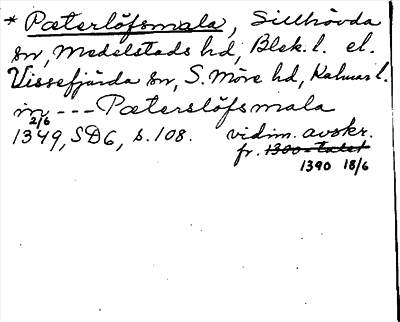 * Pæterlöfsmala, Sillhövda
sn, Medelstads hd, Blek. l. el.
Vissefjärda sn, S. Möre hd, Kalmar l.
in --- Pæterslöfsmala
1349, 2/6 SD6, s. 108. vidim. avskr.
fr. 1300-talet
1390 18/6